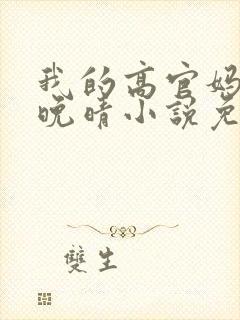 我的高官妈
晚晴小说免
雙生